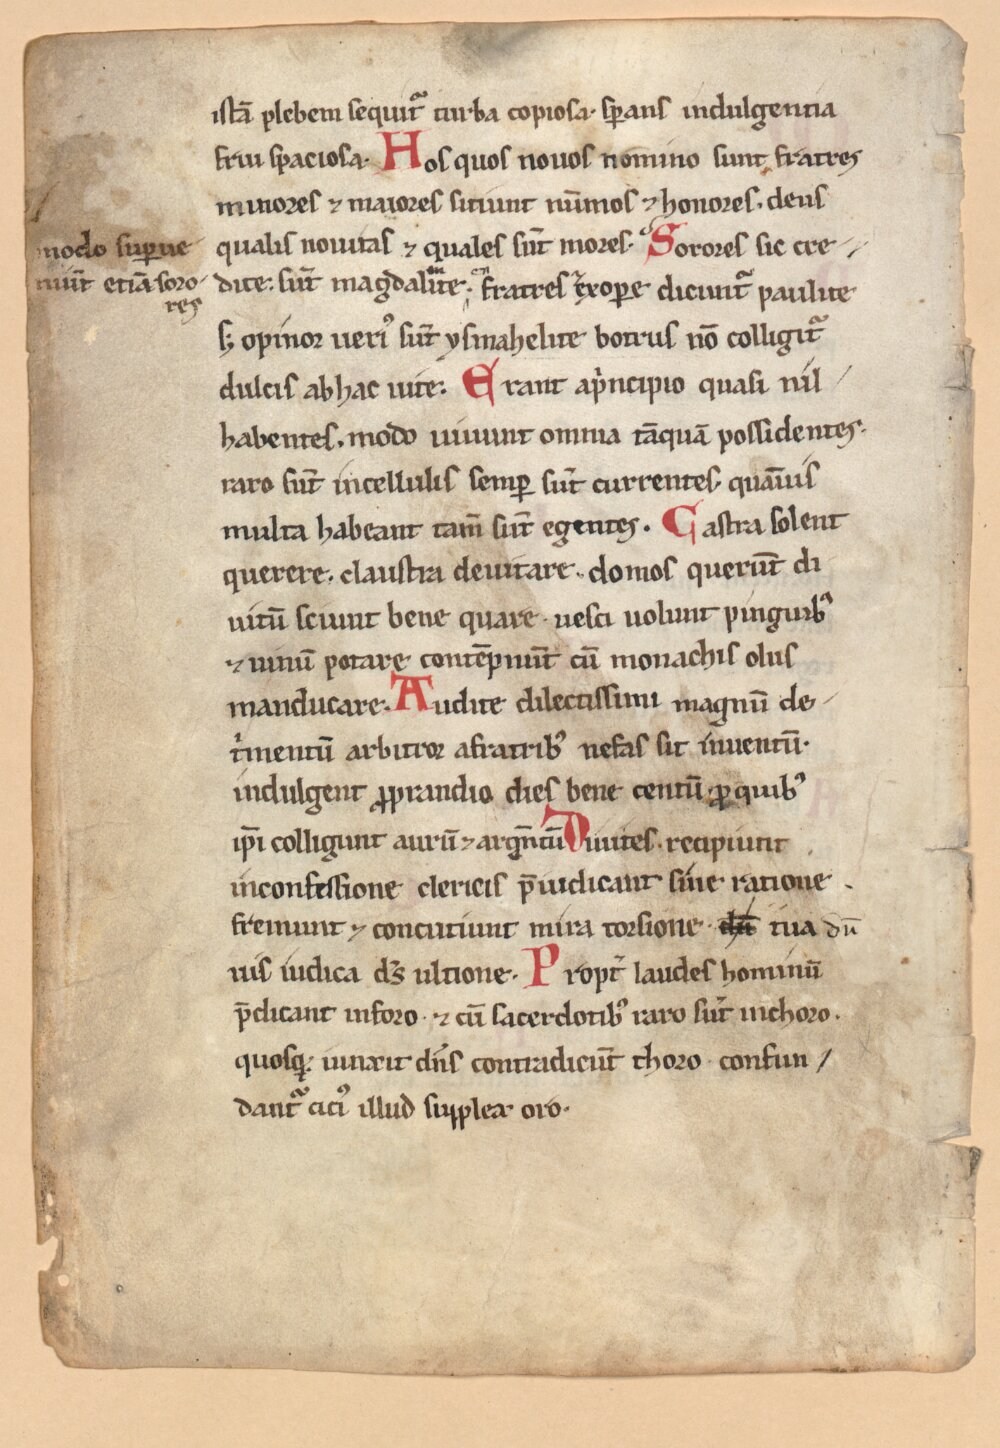 istā plebem sequit᷑ turba copiosa· sꝑans indulgentia
friu spaciosa· Hos quos nouos nomino sunt fratres
minores ⁊ maiores sitiunt nūmos ⁊ honores, deus
qualis nouitas ⁊ quales sūt mores· Sorores sic cre-
modo suꝑue
niūt etiā soro-
res
dite: sūt magdalite· fratres exoꝑe dicunt᷑ paulite
sꝫ opinor ueriꝰ sūt ysmahelite botrus nō colligit᷑
dulcis abhac uite: Erant apͥncipio quasi nil
habentes, modo uiuunt omnia tāquā possidentes·
raro sūt incellulis semꝑ sūt currentes· quāuis
multa habeant tam̄ sūt egentes· Castra solent
querere· claustra deuitare· domos querūt di
uitū sciunt bene quare· uesci uolunt pinguibꝰ
⁊ uinū potare contēpnūt cū monachis olus
manducare· Audite dilectissimi magnū de-
tͥmentū arbitror afratribꝰ nefas sit inuentū·
indulgent ꝓprandio dies bene centū ꝓ quibꝰ
ip̄i colligunt aurū ⁊ argn̄tū Diuites recipiunt
inconfessione clericis p̄iudicant sine ratione
fremunt ⁊ concutiunt mira torsione· tua dū
uis iudica d̄s ultione· Propt᷑ laudes hominū
p̄dicant inforo· ⁊ cū sacerdotibꝰ raro sūt inchoro·
quosqꝫ iunxit dn̄s contradicūt thoro· confun
dant᷑ citiꝰ illud supplex oro·